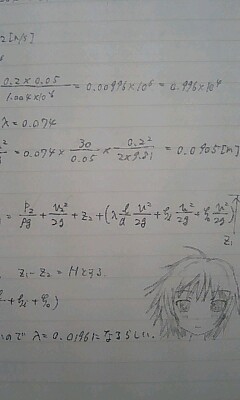 2[m/s]
0.2×0.05 / 1.004×10⁻⁶ = 0.00996×10⁶ = 0.996×10⁴
λ = 0.074
= 0.074 × 30/0.05 × 0.2²/2×9.81 = 0.0905[m]
= P₂/ρg + v₂²/2g + z₂ + (λ l/d v²/2g + ζ v²/2g + ζ v²/2g)
z₁
z₁ - z₂ = Hとする.
ので λ = 0.0196になるらしい.